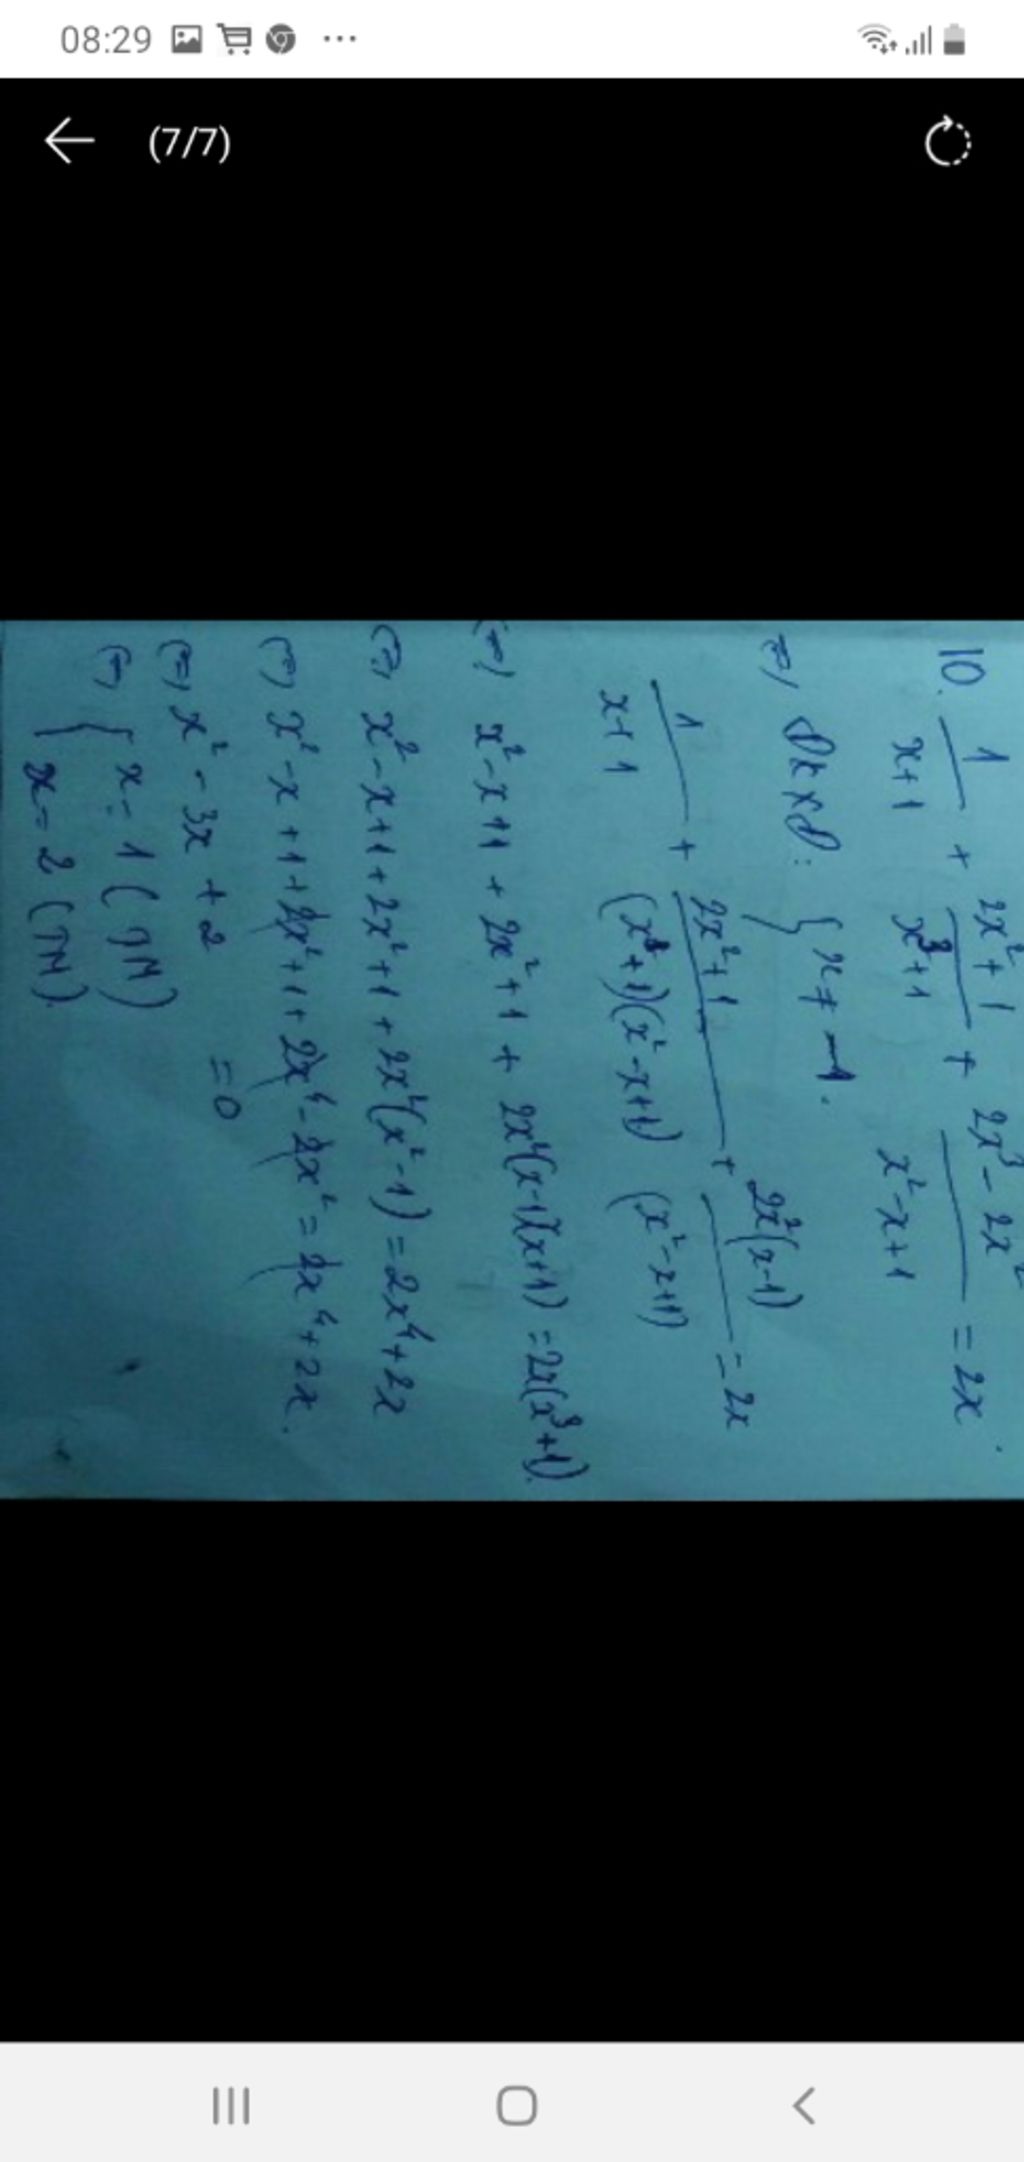 08:29
(7/7)
10. 1/(x+1) + (2x²+1)/(x³+1) + (2x³-2x²)/(x²-x+1) = 2x.
(=) ĐkxĐ: { x ≠ -1.
1/(x+1) + (2x²+1)/((x+1)(x²-x+1)) + 2x²(x-1)/(x²-x+1) = 2x
(=) x²-x+1 + 2x²+1 + 2x²(x-1)(x+1) = 2x(x³+1).
(=) x²-x+1+2x²+1 + 2x²(x²-1) = 2x⁴+2x
(=) x²-x+1+2x²+1+2x⁴-2x² = 2x⁴+2x.
(=) x²-3x+2 = 0
(=) { x=1 (TM)
x=2 (TM).